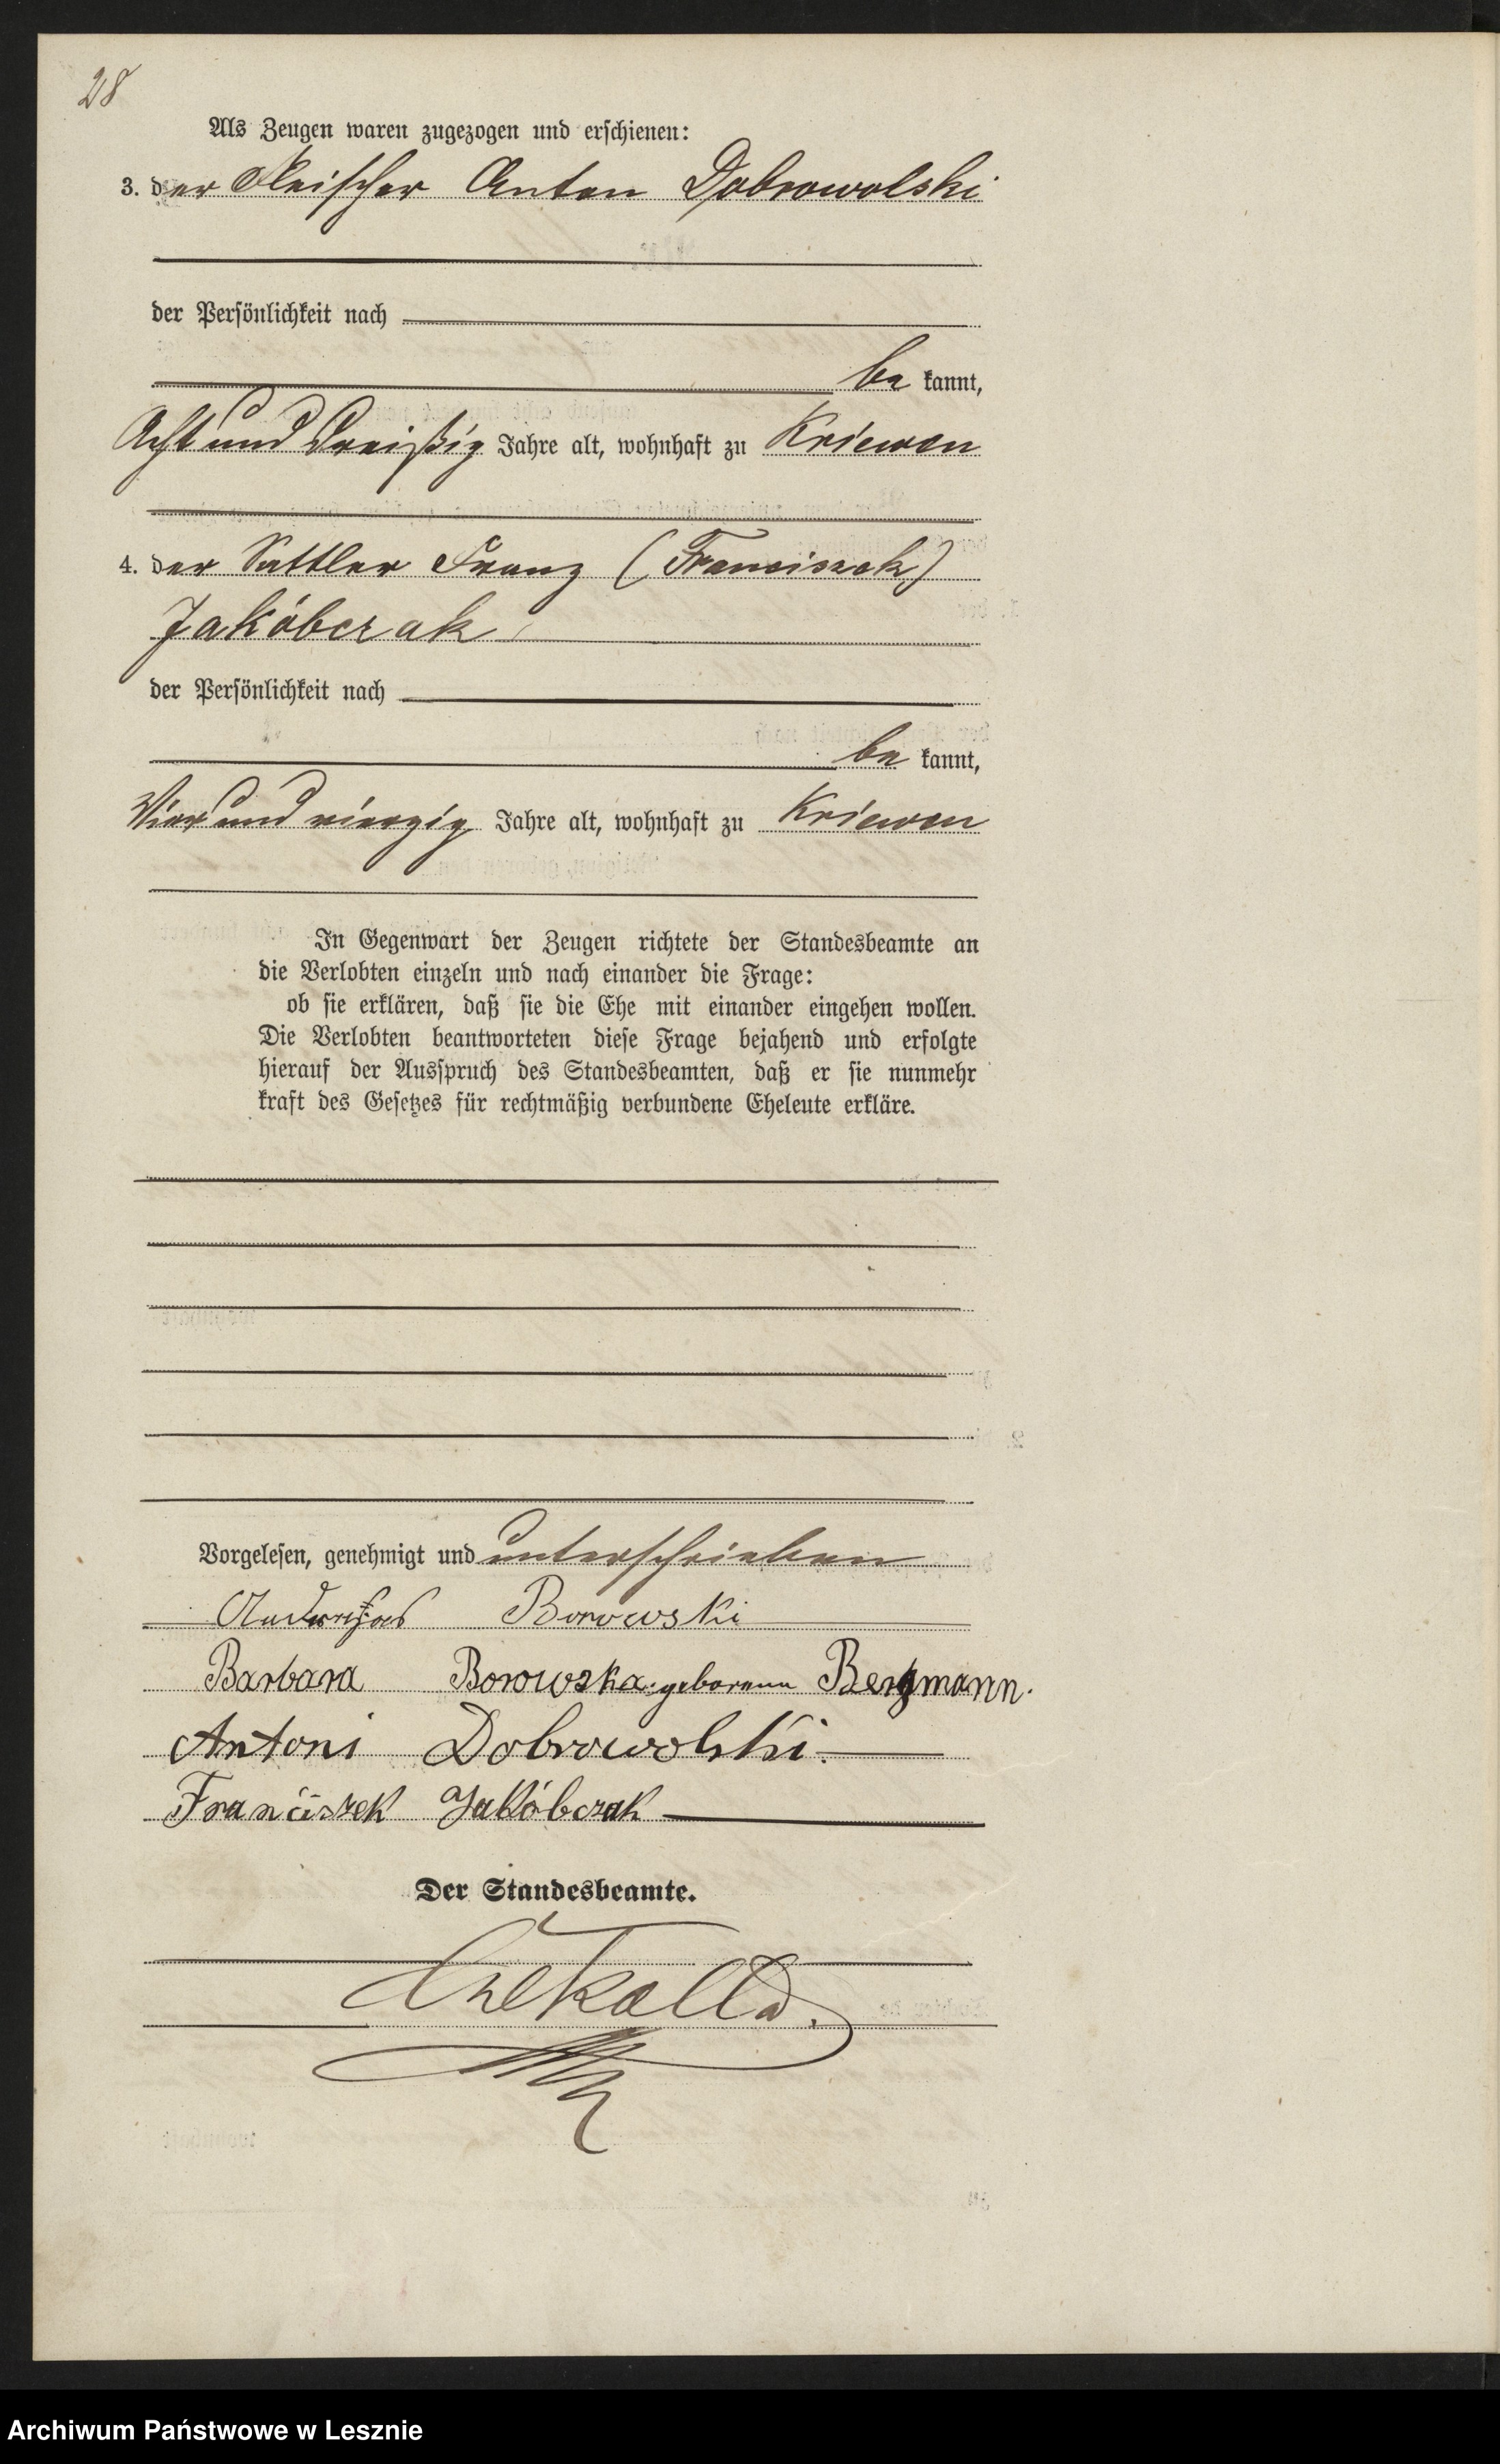 28
Als Zeugen waren zugezogen und erschienen:
3. der Fleischer Anton Dobrowolski
der Persönlichkeit nach
be kannt,
Acht und dreißig Jahre alt, wohnhaft zu Kriewen
4. der Sattler Franz (Franciszek)
Jakóbczak
der Persönlichkeit nach
be kannt,
Vier und vierzig Jahre alt, wohnhaft zu Kriewen
In Gegenwart der Zeugen richtete der Standesbeamte an
die Verlobten einzeln und nach einander die Frage:
ob sie erklären, daß sie die Ehe mit einander eingehen wollen.
Die Verlobten beantworteten diese Frage bejahend und erfolgte
hierauf der Ausspruch des Standesbeamten, daß er sie nunmehr
kraft des Gesetzes für rechtmäßig verbundene Eheleute erkläre.
Vorgelesen, genehmigt und unterschrieben
Borowski
Barbara Borowska geborene Bergmann.
Antoni Dobrowolski.
Franciszek Jakóbczak
Der Standesbeamte.
Archiwum Państwowe w Lesznie